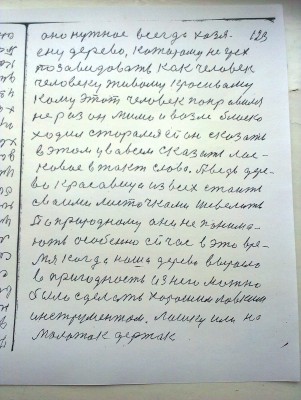 123
оно нужное всегда хозя-
ену дерево, которому не грех
позавидовать как человек
человеку живому красивому
кому этот человек понравился
не раз он мимо и возле близко
ходил старался он сказать
в этом и вовсем сказать лас-
ковое в такт слово. А ведь дере-
во красавец из всех стоит
своими листочками шевелить
По природному они не понима-
ють особенно сейчас в это вре-
мя когда наша дерево выросло
в пригодность из него можно
было сделать хорошим ловким
инструментом. Лошку или на
молоток держак